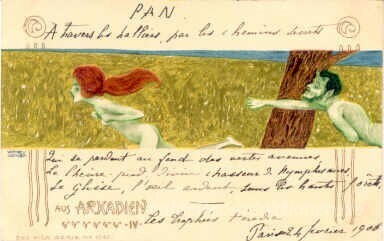 PAN
A travers les halliers, par les chemins secrets
Qui se perdent au fond des vertes avenues,
Le Chèvre-pied, divin chasseur de Nymphes nues,
Se glisse, l'œil ardent, sous les hautes forêts
AUS ARKADIEN
IV
Les Trophées Heredia
Paris 24 février 1900